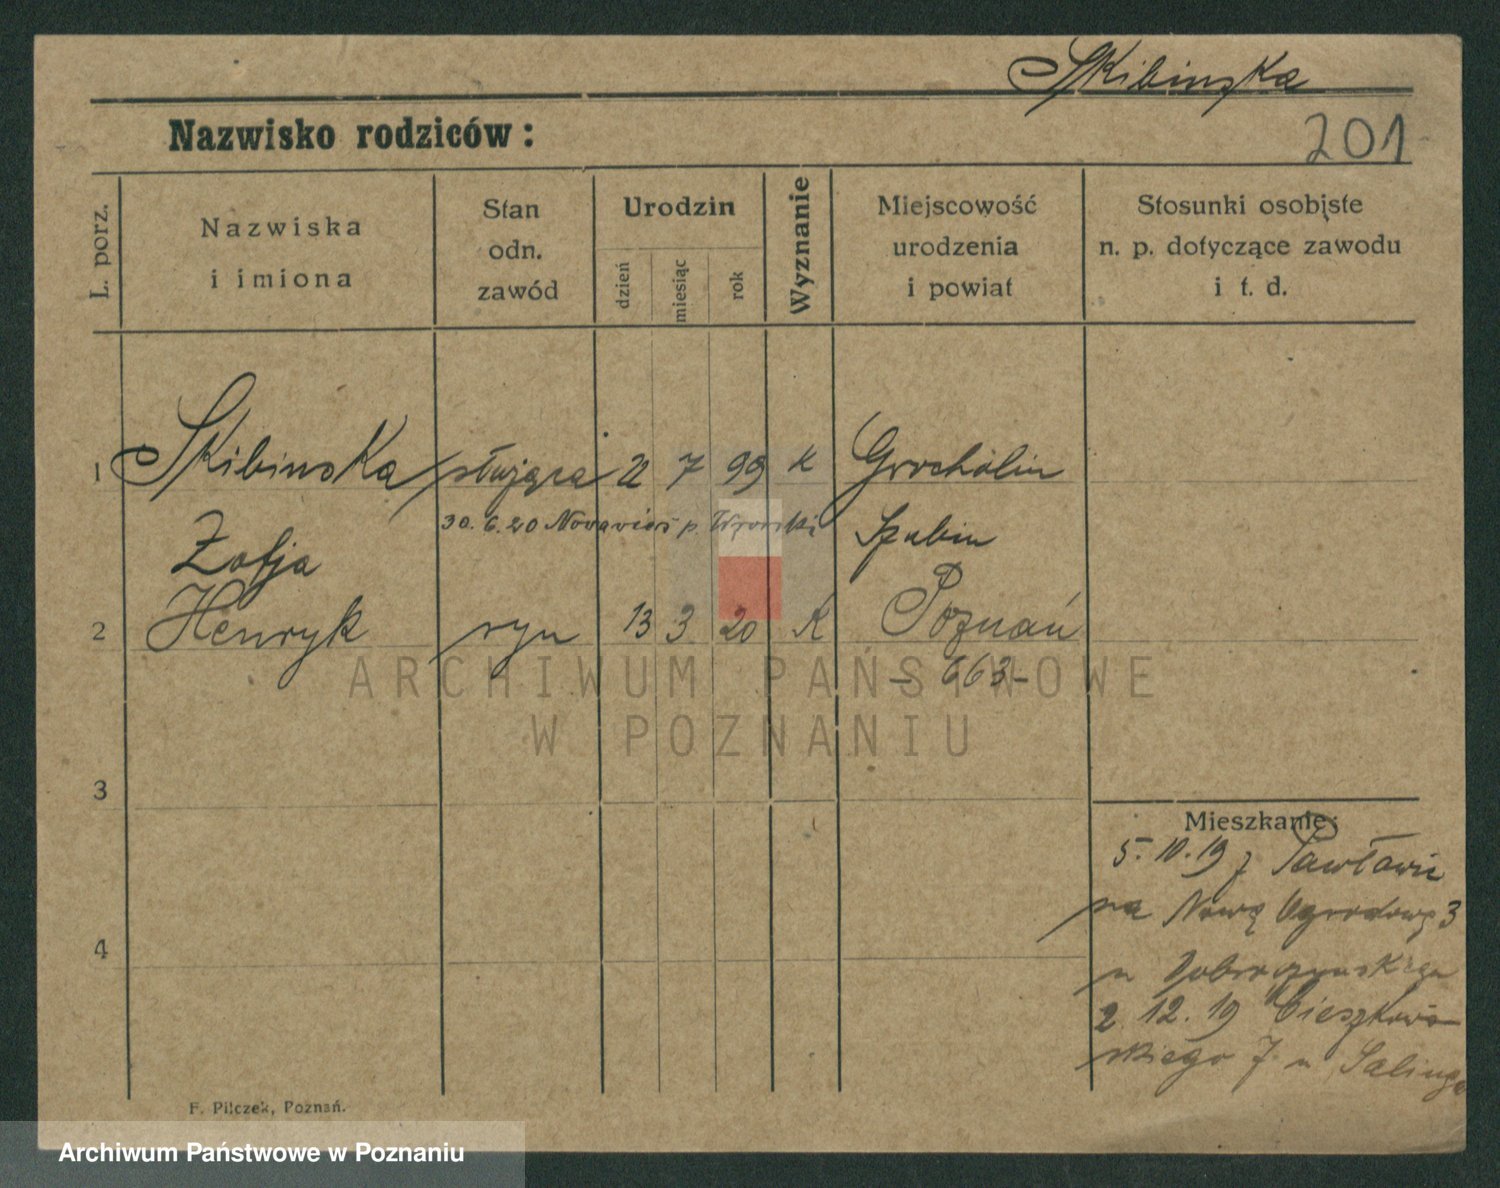 Skibinska
Nazwisko rodziców:
201
L. porz.
Nazwiska
i imiona
Stan
odn.
zawód
Urodzin
dzień
miesiąc
rok
Wyznanie
Miejscowość
urodzenia
i powiat
Stosunki osobiste
n. p. dotyczące zawodu
i t. d.
1 Skibinska służąca 22 7 99 K Grocholin
30.6.20 p.
Zofja Szubin
2 Henryk syn 13 3 20 K Poznań
- 663 -
ARCHIWUM PAŃSTWOWE
W POZNANIU
3
Mieszkanie:
5.10.19 z Pawłowic
na Nową Ogrodową 3
4
u
2.12.19 Cieszkow-
skiego 7 u Salinga
F. Pilczek, Poznań.
Archiwum Państwowe w Poznaniu